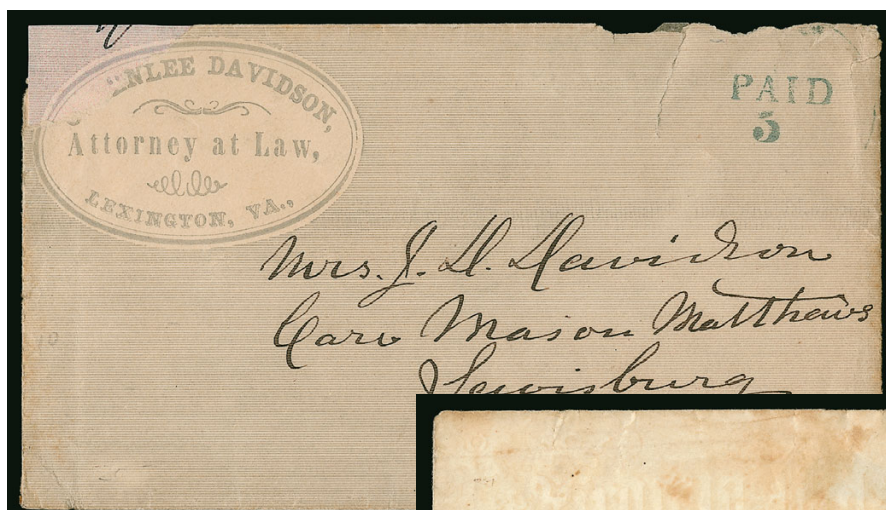 NLEE DAVIDSON,
Attorney at Law,
LEXINGTON, VA.,
PAID
5
Mrs. J. D. Davidson
Care Mason Matthews
Lewisburg
10